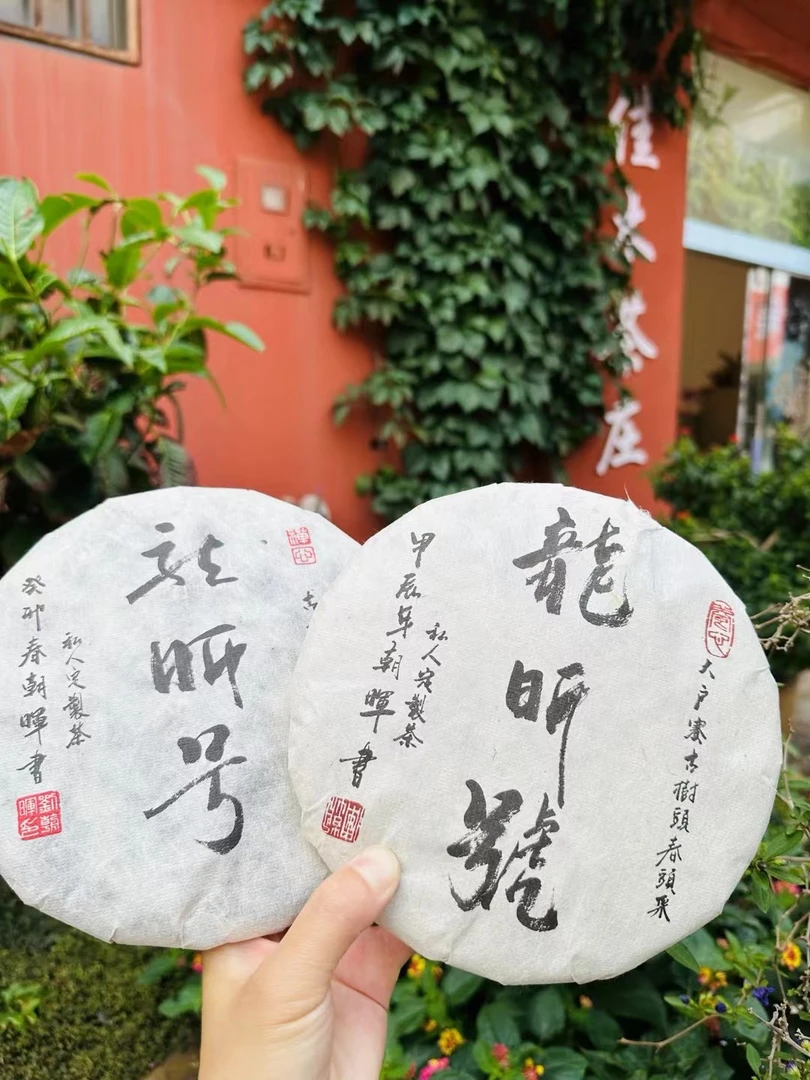 佳
茶庄
古
龙昕号
私人定製茶
癸卯春朝暉書
大户寨古樹頭春頭采
龍昕號
私人定製茶
甲辰年朝暉書